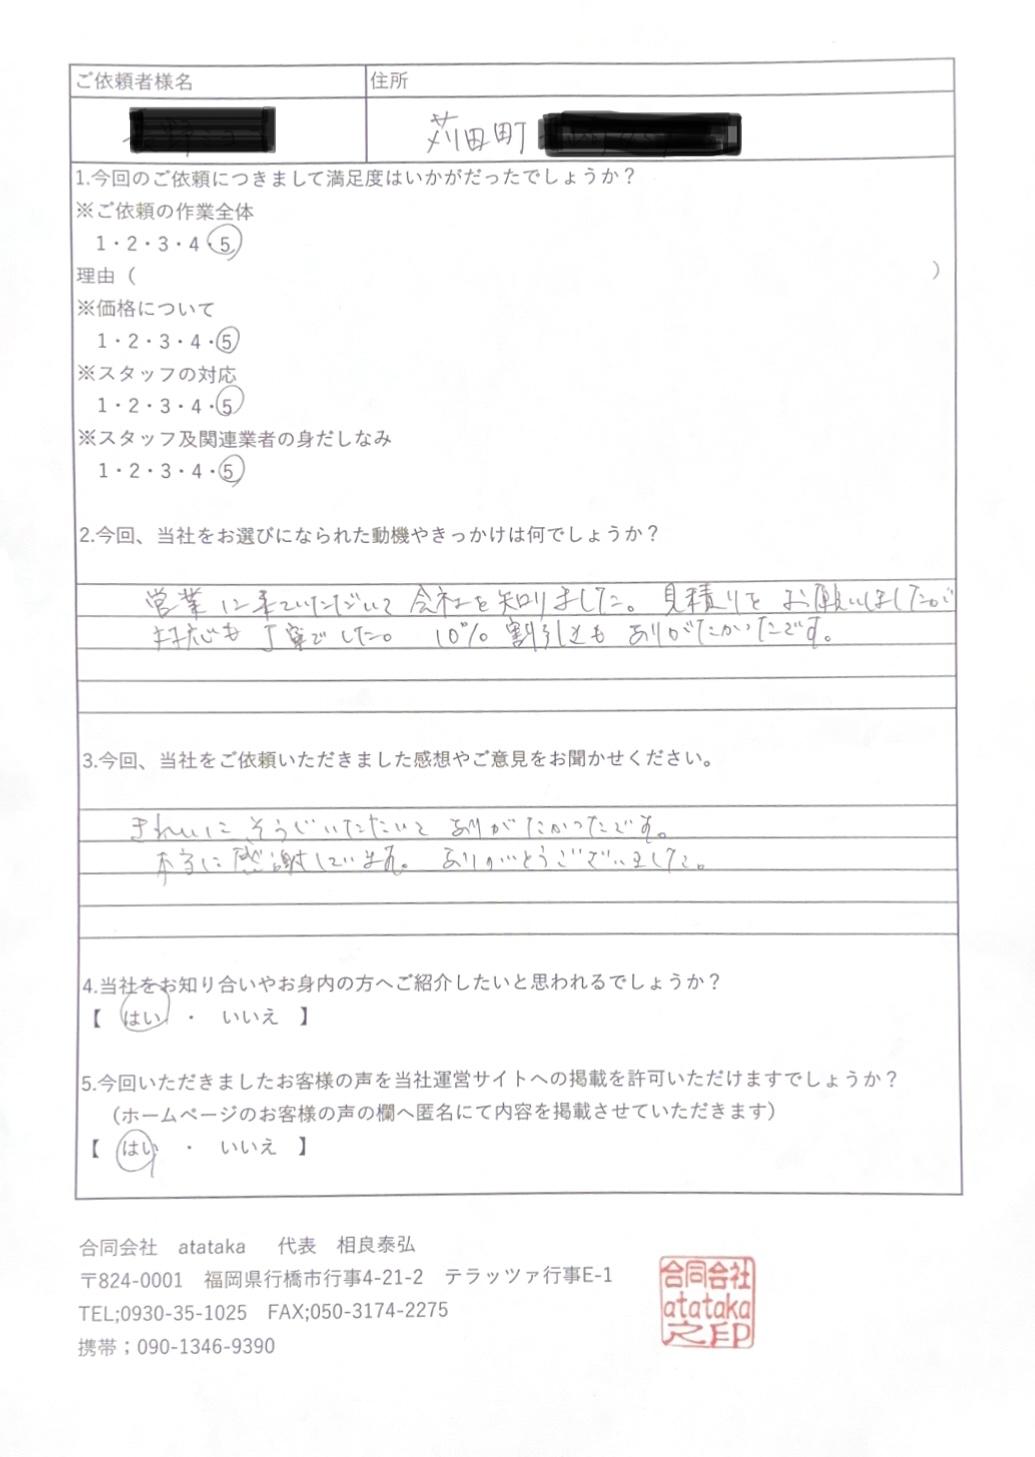 ご依頼者様名 住所
苅田町
1.今回のご依頼につきまして満足度はいかがだったでしょうか？
※ご依頼の作業全体
1・2・3・4・5
理由（ ）
※価格について
1・2・3・4・5
※スタッフの対応
1・2・3・4・5
※スタッフ及関連業者の身だしなみ
1・2・3・4・5
2.今回、当社をお選びになられた動機やきっかけは何でしょうか？
営業に来ていただいて 会社を知りました。見積りを お願いしましたが
対応も 丁寧でした。 10% 割引きも ありがたかったです。
3.今回、当社をご依頼いただきました感想やご意見をお聞かせください。
きれいに そうじいただいて ありがたかったです。
本当に感謝しています。 ありがとうございました。
4.当社をお知り合いやお身内の方へご紹介したいと思われるでしょうか？
【 はい ・ いいえ 】
5.今回いただきましたお客様の声を当社運営サイトへの掲載を許可いただけますでしょうか？
（ホームページのお客様の声の欄へ匿名にて内容を掲載させていただきます）
【 はい ・ いいえ 】
合同会社 atataka 代表 相良泰弘
〒824-0001 福岡県行橋市行事4-21-2 テラッツァ行事E-1
TEL;0930-35-1025 FAX;050-3174-2275
携帯；090-1346-9390
合同会社
atataka
之印